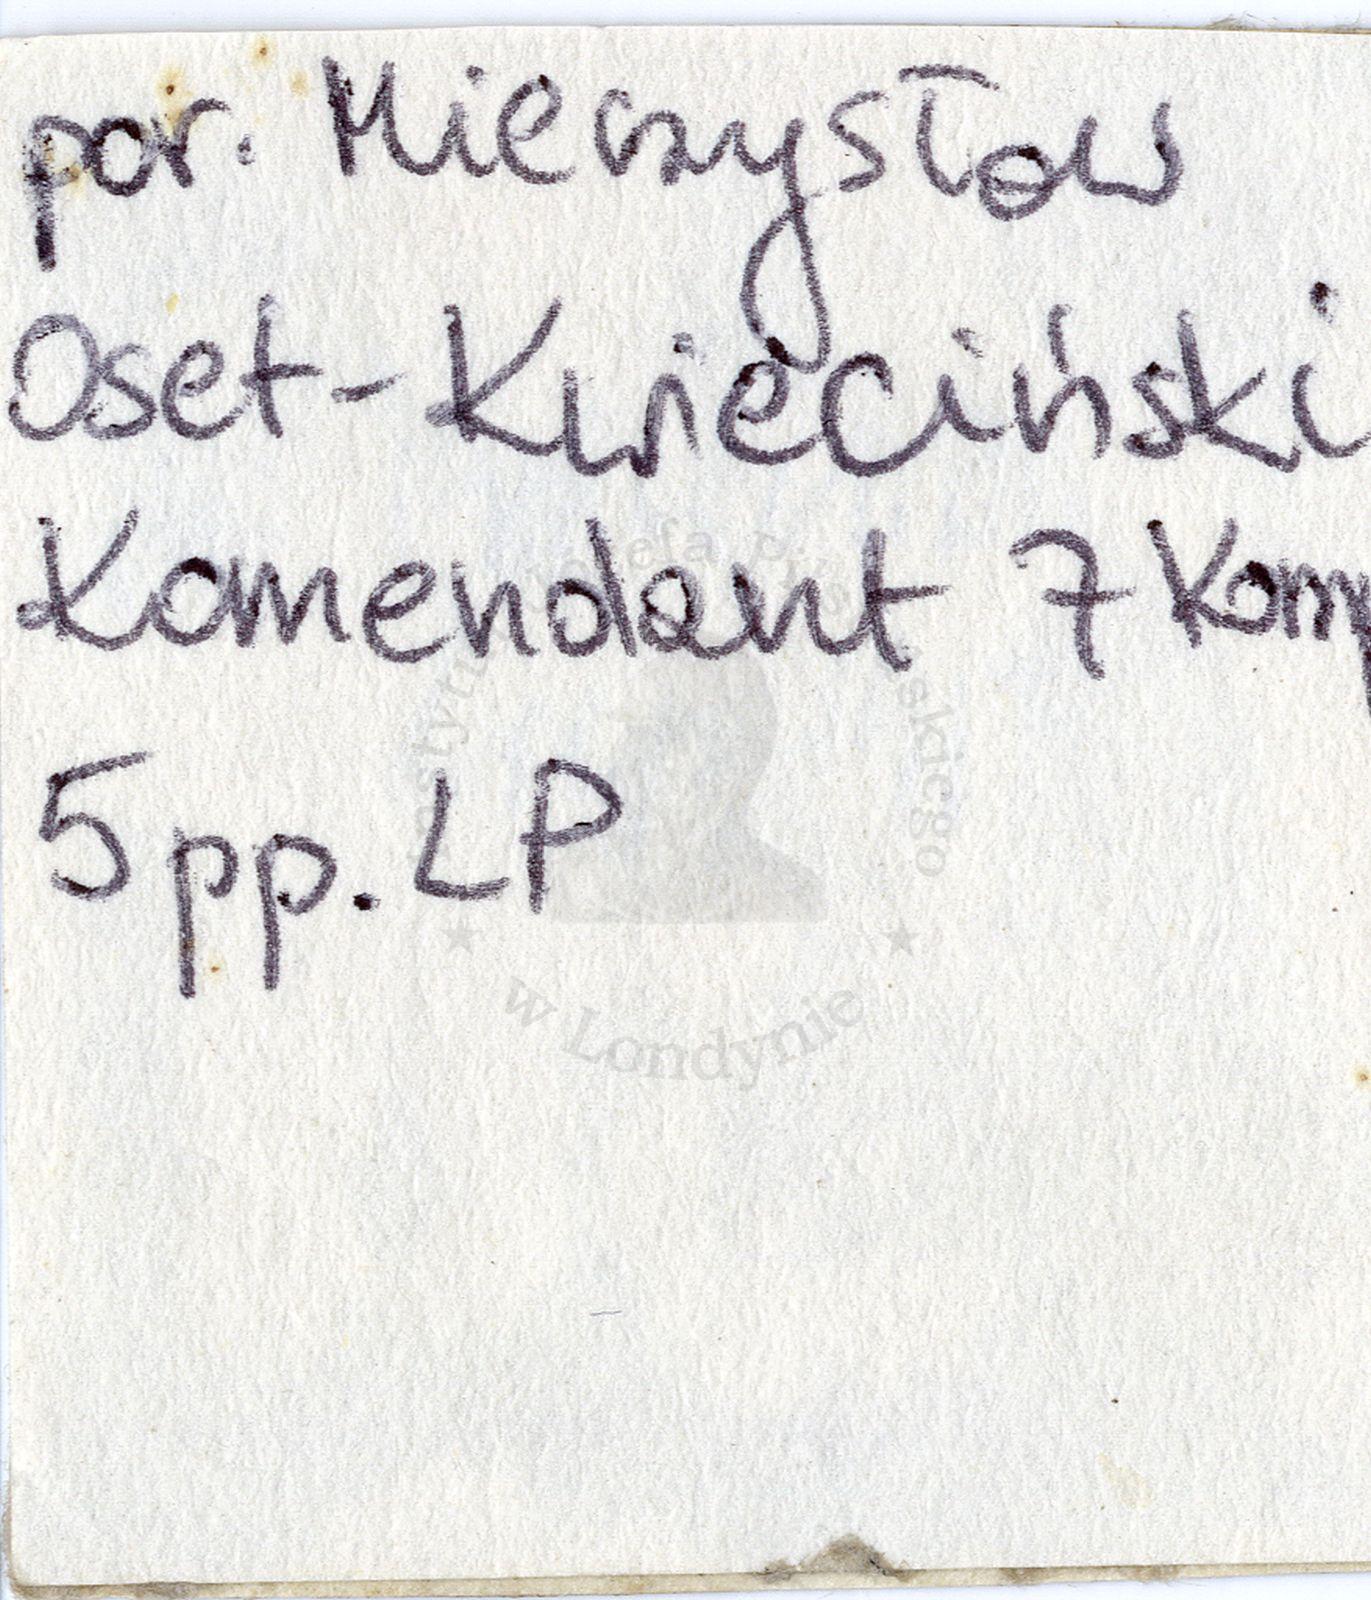 por. Mieczysław
Oset-Kwieciński
Komendant 7 Komp
5 pp. LP
Instytut Józefa Piłsudskiego
w Londynie